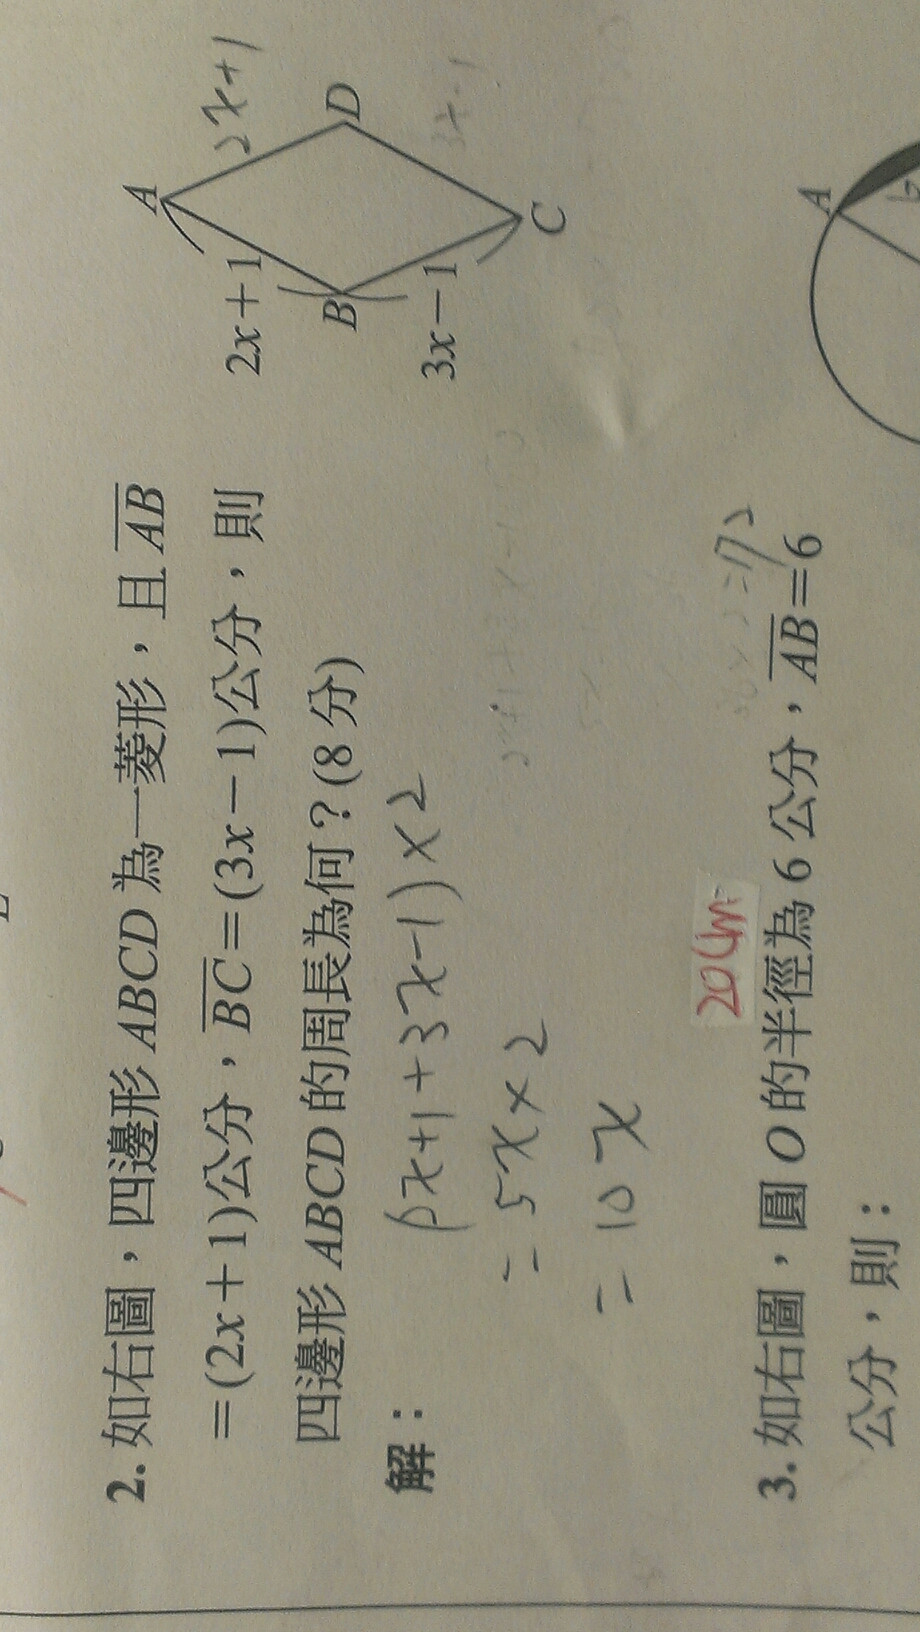 2. 如右圖，四邊形 ABCD 為一菱形，且 AB
=(2x+1)公分，BC=(3x-1)公分，則
四邊形 ABCD 的周長為何？(8 分)
A
2x+1
2x+1
B
D
3x-1
3x-1
C
解：
(2x+1+3x-1)×2
=5x×2
=10x
20cm
3. 如右圖，圓 O 的半徑為 6 公分，AB=6
公分，則：
A